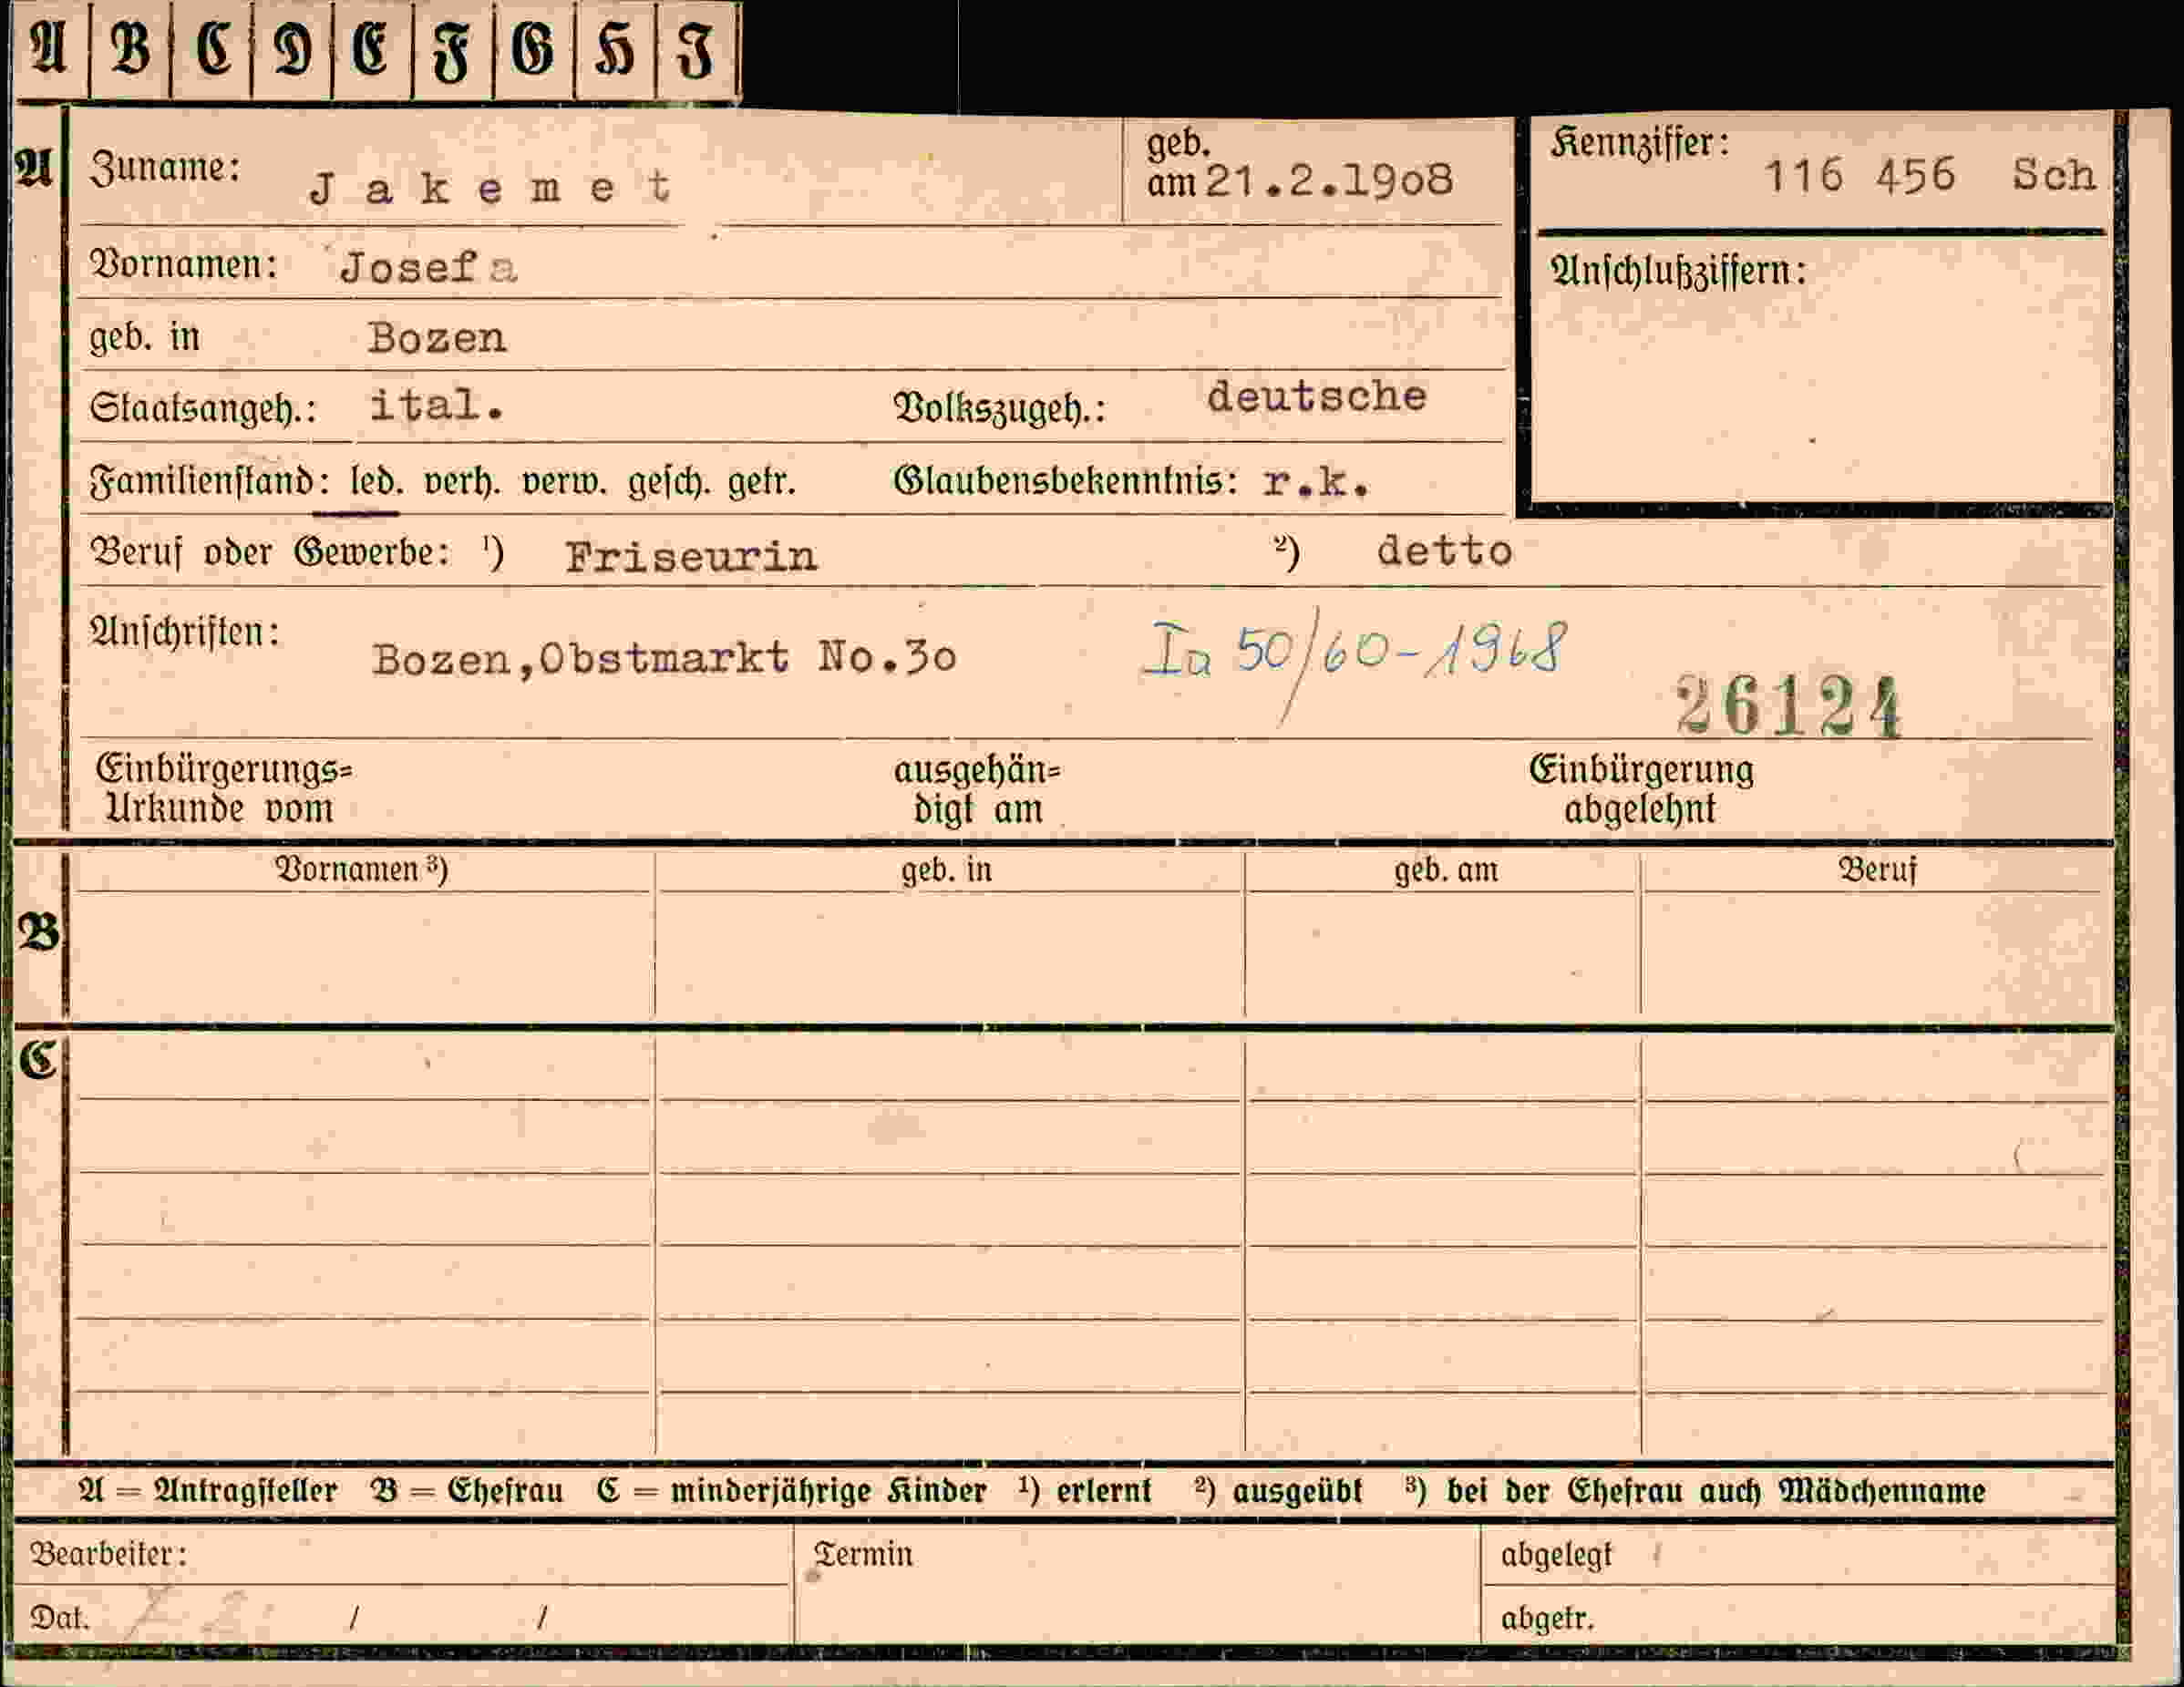 A B C D E F G H I
A Zuname: Jakemet geb. am 21.2.19o8 Kennziffer: 116 456 Sch
Vornamen: Josefa Anschlußziffern:
geb. in Bozen
Staatsangeh.: ital. Volkszugeh.: deutsche
Familienstand: led. verh. verw. gesch. getr. Glaubensbekenntnis: r.k.
Beruf oder Gewerbe: ¹) Friseurin ²) detto
Anschriften: Bozen,Obstmarkt No.3o Ia 50/60-1968
26124
Einbürgerungs= ausgehän= Einbürgerung
Urkunde vom digt am abgelehnt
Vornamen ³) geb. in geb. am Beruf
B
C
A = Antragsteller B = Ehefrau C = minderjährige Kinder ¹) erlernt ²) ausgeübt ³) bei der Ehefrau auch Mädchenname
Bearbeiter: Termin abgelegt
Dat. / / abgetr.